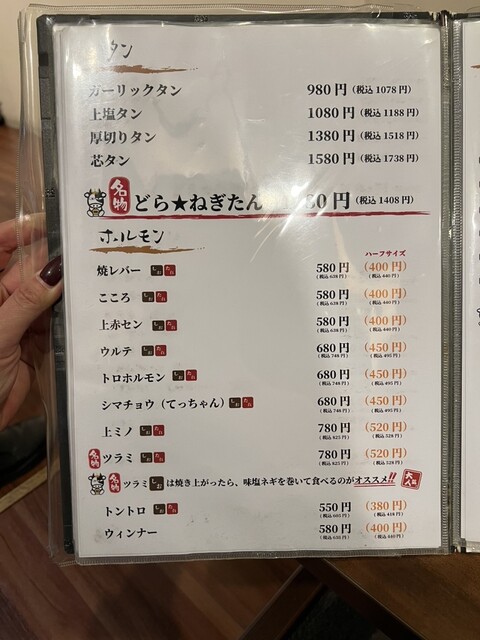 タン
ガーリックタン 980円(税込 1078円)
上塩タン 1080円(税込 1188円)
厚切りタン 1380円(税込 1518円)
芯タン 1580円(税込 1738円)
名物 どら★ねぎたん 80円(税込 1408円)
ホルモン
ハーフサイズ
焼レバー しお たれ 580円 (400円)
(税込 638円) (税込 440円)
こころ しお たれ 580円 (400円)
(税込 638円) (税込 440円)
上赤セン しお たれ 580円 (400円)
(税込 638円) (税込 440円)
ウルテ しお たれ 680円 (450円)
(税込 748円) (税込 495円)
トロホルモン しお たれ 680円 (450円)
(税込 748円) (税込 495円)
シマチョウ(てっちゃん) しお たれ 680円 (450円)
(税込 748円) (税込 495円)
上ミノ しお たれ 780円 (520円)
(税込 825円) (税込 528円)
名物 ツラミ しお たれ 780円 (520円)
(税込 825円) (税込 528円)
名物 ツラミ しお は焼き上がったら、味塩ネギを巻いて食べるのがオススメ!! 大人気
トントロ しお たれ 550円 (380円)
(税込 605円) (税込 418円)
ウィンナー 580円 (400円)
(税込 638円) (税込 440円)